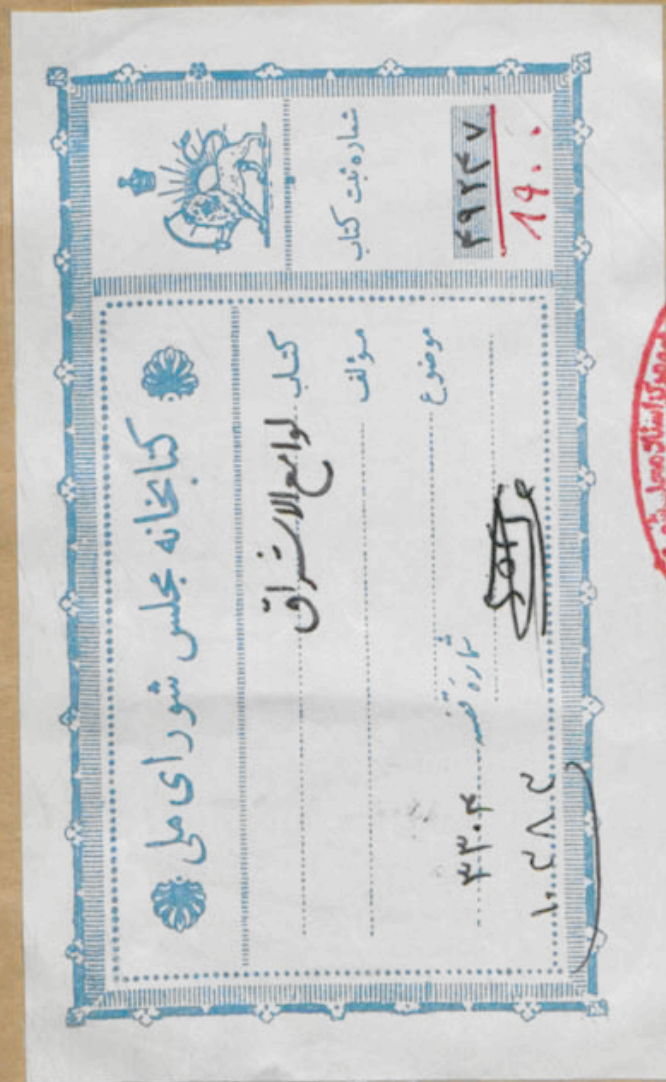 کتابخانه مجلس شورای ملی
کتاب لوامع الاشراق
مؤلف
موضوع
شماره قفسه ۳۳۰۴
۱۰۲۸۲
شماره ثبت کتاب
۴۹۲۴۷
۱۹۰۰